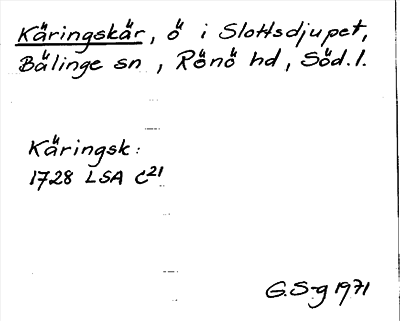 Käringskär, ö i Slottsdjupet,
Bälinge sn, Rönö hd, Söd. l.
Käringsk:
1728 LSA C21
G.S-g 1971